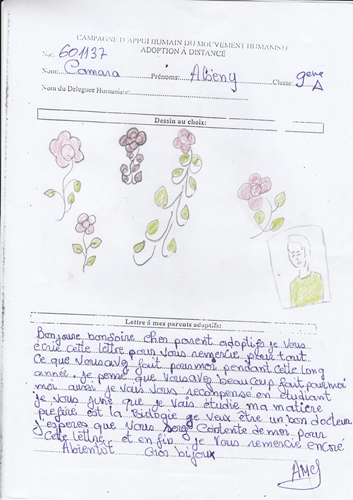 CAMPAGNE D'APPUI HUMAIN DU MOUVEMENT HUMANISTE
ADOPTION À DISTANCE
No: 601137
Nom: Camara Prénoms: Albeny Classe: 9eme A
Nom du Délégué Humaniste:
Dessin au choix:
Lettre à mes parents adoptifs:
Bonjoure bonsoire cher parent adoptifs je vous
écrie cette lettre pour vous remercie pour tout
ce que vousavez fait pour moi pendant cette long
année. je pense que vousavez beaucoup fait pour moi
moi aussi je vais vous recompensé en étudiant
je vous jure que je vais étudié ma matière
préféré est la Biologie je veux être un bon docteur
j'esperes que vous serez contente de moi pour
cette lettre et en fin je vous remercie encore
Abientot Gros bijoux